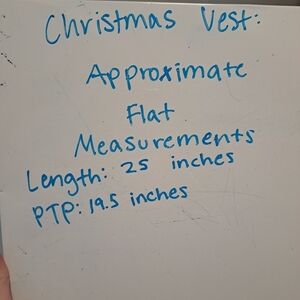 Christmas Vest:
Approximate
Flat
Measurements
Length: 25 inches
PTP: 19.5 inches